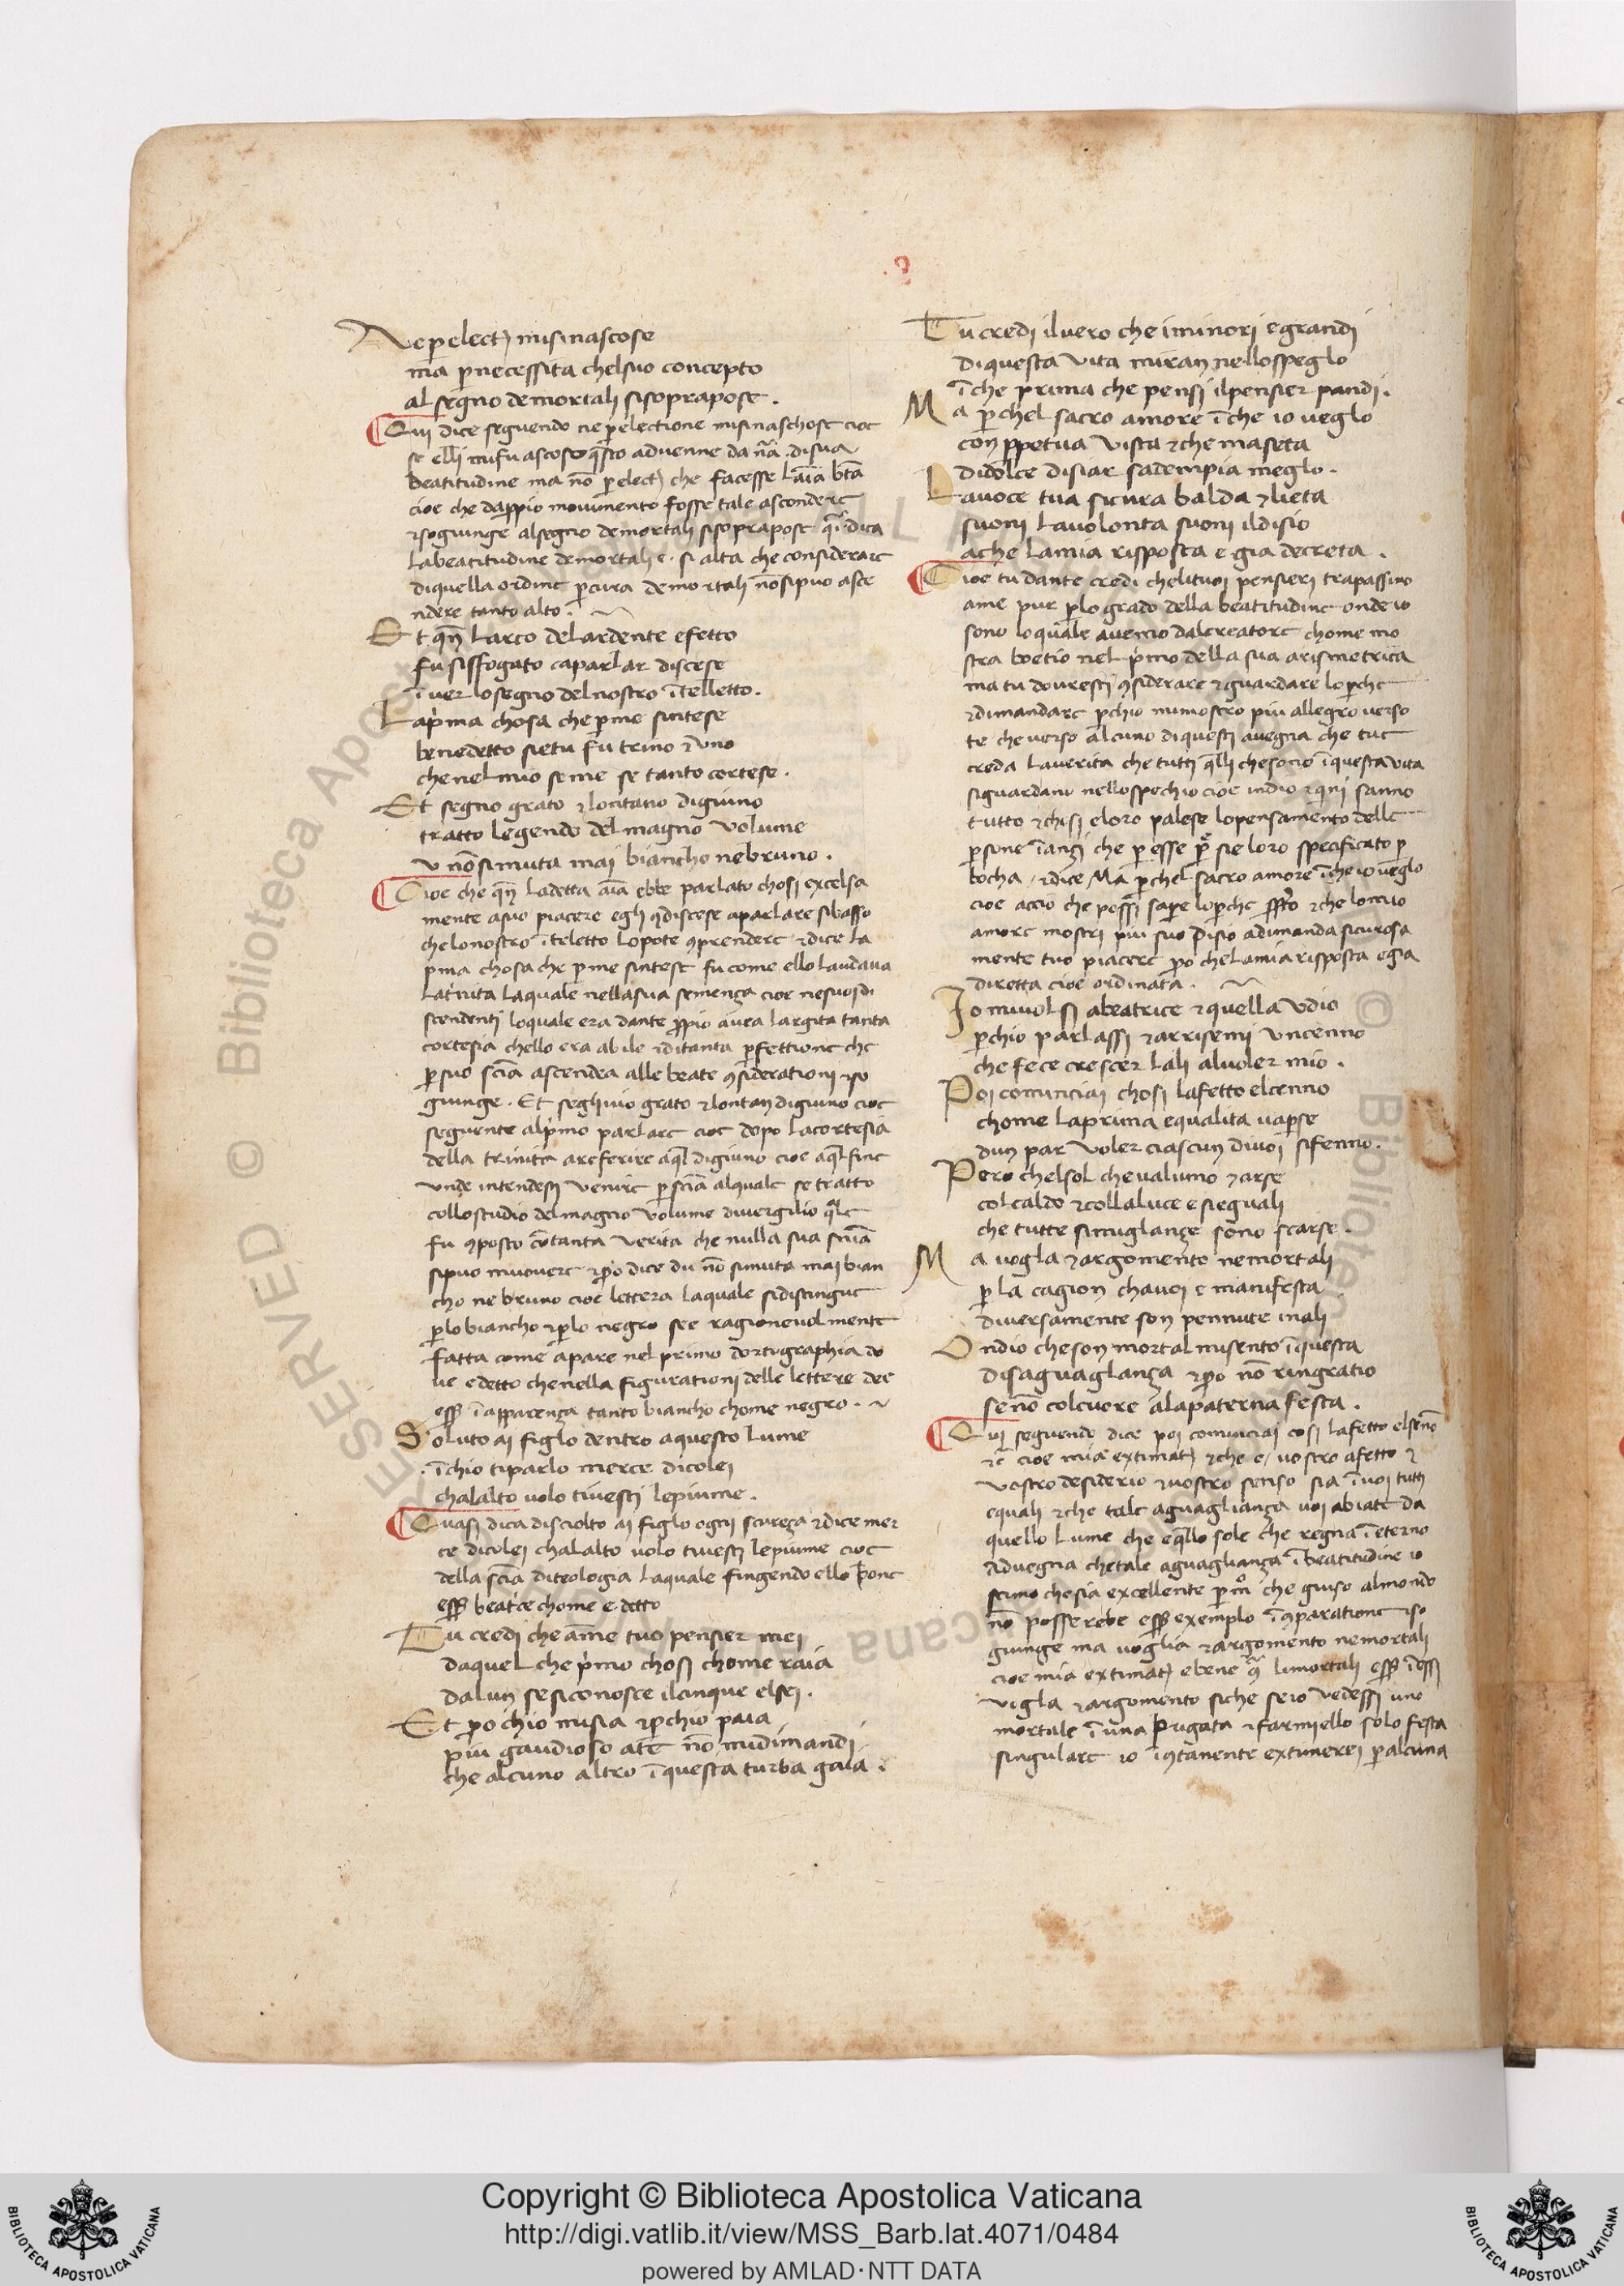 Ne p̱ elect᷒ misi nascose
ma p̱ necessita chelsuo concepto
al segno demortali sisoprapose .
Qui dice seguendo ne p̱ electione misinaschose cioe
se elli mifu ascoso q̄sto aduenne da n̄a . disua
beatitudine ma nō p̱ elect᷒ che facesse laīa bt̄a
cioe che dap̱pio mouimento fosse tale asconderc
⁊ sogiunge alsegno demortali sisoprapose q̄i dica
labeatitudine demortali e . si alta che considerare
diquella ordine p̱ cura demortali nōsipuo asce
ndere tanto alto .
Et qn̄ larco delardente efetto
fu sisfogato caparlar discese
ī uer losegno delnostro ītelletto .
Lap̄ma chosa che p̱ me sintese
benedetto sietu fu trino ⁊ uno
che nelmio seme se tanto cortese .
Et segno grato ⁊ lontano digiuno
tratto legendo del magno volume
v nōsimuta mai biancho nebruno .
Cioe che qn̄ ladetta aīa ebbe parlato chosi excelsa
mente asuo piacere egli ꝯdiscese aparlare sibasso
chelonostro īteletto lopote ꝯprenderc ⁊ dice la
p̄ma chosa che p̱ me sintese fu come ello laudaua
latrīta laquale nellasua semenza cioe nesuoi di
scendenti loquale era dante p̱pio auea largita tanta
cortesia chello era abile ⁊ ditanta p̱fettione che
p̱ suo sciā ascendea alle beate ꝯsiderationi ⁊ so
giunge . Et seghuio grato ⁊ lontan digiuno cioe
seguente alp̄mo parlare cioe dopo lacortesia
della trinita areferire aq̄l digiuno cioe aq̄l fine
vnde intendesi venire p̱ sciā alquale se tratto
collo studio delmagno volume diuergilio q̄le
fu ꝯposto cōtanta verita che nulla sua snīa
sipuo mouere ⁊ p̱o dice du nō simuta mai bian
cho ne bruno cioe lettera laquale sidistingue
p̱ lo biancho ⁊ p̱ lo negro see ragioneuolmente
fatta come apare nel primo dortographia do
ue e detto chenella figurationi delle lettere dee
ess̄ ī apparenza tanto biancho chome negro .
Soluto ai figlo dentro aquesto lume
. īchio tiparlo merce dicolei
chalalto volo tiuesti lepiume .
Quasi dica disciolto ai figlo ogni scureza ⁊ dice mer
ce dicolei chalalto uolo tiuesti lepiume cioe
della sciā diteologia laquale fingendo ello pone
ess̄ beatrice chome e . detto
Tu credi che ame tuo pensier mei
daquel che p̄mo chosi chome raia
dalun sesiconosce ilcinque elsei .
Et p̱o chio misia ⁊ p̱chio paia
piu gaudioso ate nō midimandi
che alcuno altro īquesta turba gaia .
Tu credi iluero che iminori egrandi
diquesta vita miran nellospeglo
īche prima che pensi ilpensier pandi .
Ma p̱ chel sacro amore īche io ueglo
con p̱petua vista ⁊ che maseta
didolce disiar sadempia meglo .
Lauoce tua sicura balda ⁊ lieta
suoni lauolonta suoni ildisio
ache lamia risposta e gia decreta .
Cioe tu dante credi chelituoi pensieri trapassino
ame pur p̱ lo grado della beatitudine onde io
sono loquale auemo dalcreatore chome mo
stra boetio nel p̄mo della sua arismetrica
ma tu douresti ꝯsiderare ⁊ guardare lop̱che
⁊ dimandare p̱chio mimostro piu allegro uerso
te che verso alcuno diquesti auegna che tue
creda lauerita che tutti q̄lli chesono īquesta vita
siguardano nellospechio cioe indio ⁊ qni sanno
tutto ⁊ chisi eloro palese lopensamento delle
p̱sone īanzi che p̱ esse sie loro specificato p̱
bocha . ⁊ dice Ma p̱chel sacro amore īche io ueglo
cioe accio che possi sap̱e lop̱che ⁊ che lomio
amore mostri piu suo disio adimanda sicurosa
mente tuo piacere p̱o che lamia risposta egia
diretta cioe ordinata .
Io miuolsi abeatrice ⁊ quella vdio
p̱chio parlassi ⁊ arrisemi vncenno
che fece crescer lali aluoler mio .
Poi comiciai chosi lafetto elcenno
chome laprima equalita uap̱se
dun par voler ciascun diuoi sifenno .
Pero chelsol cheualumo ⁊ arse
colcaldo ⁊ collaluce e sieguali
che tutte simiglanze sono scarse .
Ma uogla ⁊ argomento nemortali
p̱ la cagion chauoi e manifesta
diuersamente son pennute inali
Ondio cheson mortal misento īquesta
disaguaglanza ⁊ p̱o nō ringratio
senō colcuore alapaterna festa .
Qui seguendo dice poi comiciai cosi lafetto elsenō
⁊c̄ cioe mia extimat᷒ ⁊ che e / uostro afetto ⁊
vostro desiderio ⁊ uostro senso sia īuoi tutti
equali ⁊ che tale aguaglianza uoi abiate da
quello lume che eq̄llo sole che regna ī eterno
Aduegna chetale aguaglianza ī beatitudine io
stimo chesia excellente che giuso almondo
nō posserebe ess̄ exemplo īꝯparatione ⁊ so
giunge ma uoglia ⁊ argomento nemortali
cioe mia extimat᷒ ebene limortali
vigla ⁊ argomento siche seio vedessi uno
mortale īuna brigata ⁊ farmiello solo festa
singulare io īꝯtanente extimerei p̱ alcuna
Copyright © Biblioteca Apostolica Vaticana
http://digi.vatlib.it/view/MSS_Barb.lat.4071/0484
powered by AMLAD·NTT DATA
BIBLIOTECA APOSTOLICA VATICANA
BIBLIOTECA APOSTOLICA VATICANA